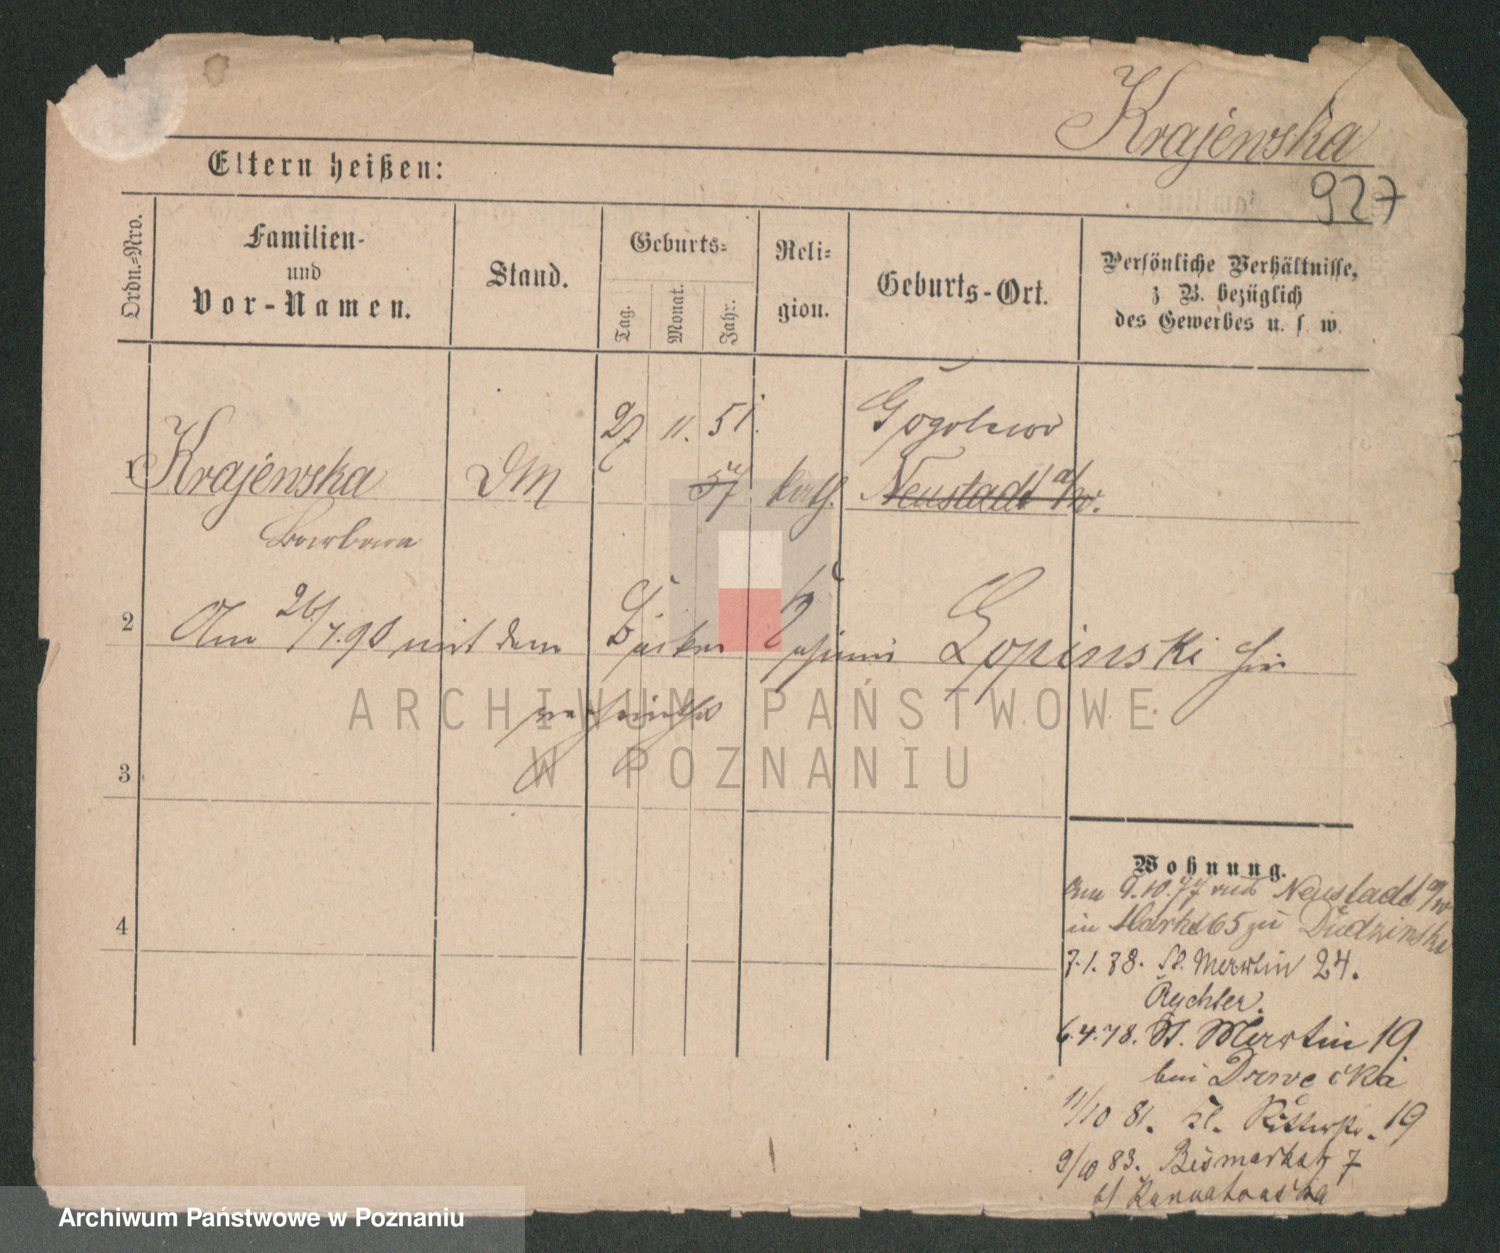 Krajewska
Eltern heißen:
927
Ordn.=Nro.
Familien-
und
Vor-Namen.
Stand.
Geburts=
Tag.
Monat.
Jahr.
Reli=
gion.
Geburts-Ort.
Persönliche Verhältnisse,
z B. bezüglich
des Gewerbes u. s w.
27 11. 51.
Gogolewo
1 Krajewska DM 57 kath. Neustadt a/W.
Barbara
2 Am 26/7.90 mit dem Bäcker Lopinski hier
ARCHIWUM PAŃSTWOWE
W POZNANIU
3
4
Wohnung.
Am 9.10.77 aus Neustadt a/W
in Markt 65 zu Dudzinska
7.1.78. St. Martin 24.
Rychter.
6.4.78. St. Martin 19
bei Drwecka
11/10 81. kl. Ritterstr. 19
9/10 83. Bismarkstr 7
b/
Archiwum Państwowe w Poznaniu